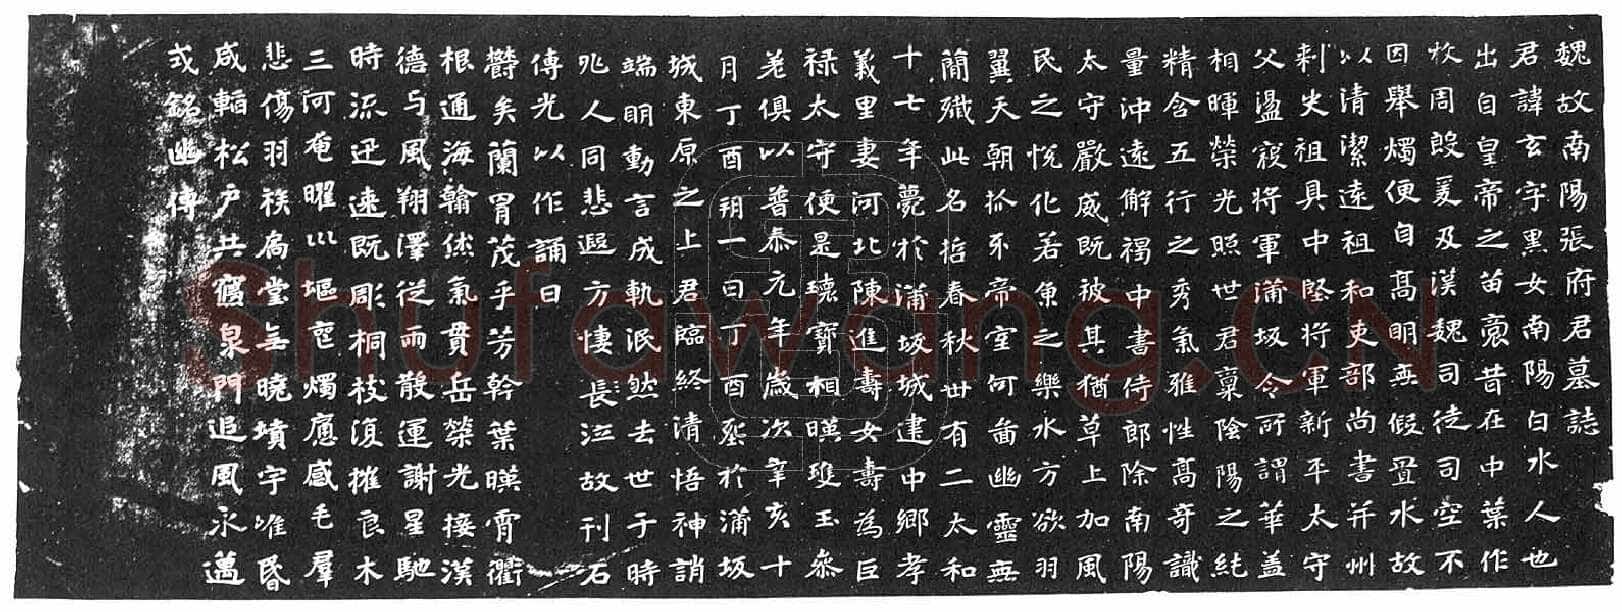 魏故南陽張府君墓誌
君諱玄字黑女南陽白水人也
出自皇帝之苗裔昔在中葉作
牧周殷爰及漢魏司徒司空不
因舉燭便自高明無假置水故
以清潔遠祖和吏部尚書并州
刺史祖具中堅將軍新平太守
父盪寇將軍蒲坂令所謂華蓋
相暉榮光照世君稟陰陽之純
精含五行之秀氣雅性高奇識
量沖遠解褐中書侍郎除南陽
太守嚴威既被其猶草上加風
民之悅化若魚之樂水方欲羽
翼天朝抓牙帝室何啚幽靈無
簡殲此名哲春秋卅有二太和
十七年薨於蒲坂城建中鄉孝
義里妻河北陳進壽女壽為巨
祿太守便是瓌寶相暎瓊玉參
差俱以普泰元年歲次辛亥十
月丁酉朔一日丁酉塟於蒲坂
城東原之上君臨終清悟神誚
端明動言成軌泯然去世于時
兆人同悲遐方悽長泣故刊石
傳光以作誦曰
欝矣蘭胄茂乎芳幹葉暎霄衢
根通海翰倐氣貫岳榮光接漢
德与風翔澤從雨散運謝星馳
時流迅速既彫桐枝復摧良木
三河奄曜巛塸燭應感毛羣
悲傷羽族扃堂無曉墳宇唯昏
咸輼松戶共寢泉門追風永邁
式銘幽傳
Shufawang.CN